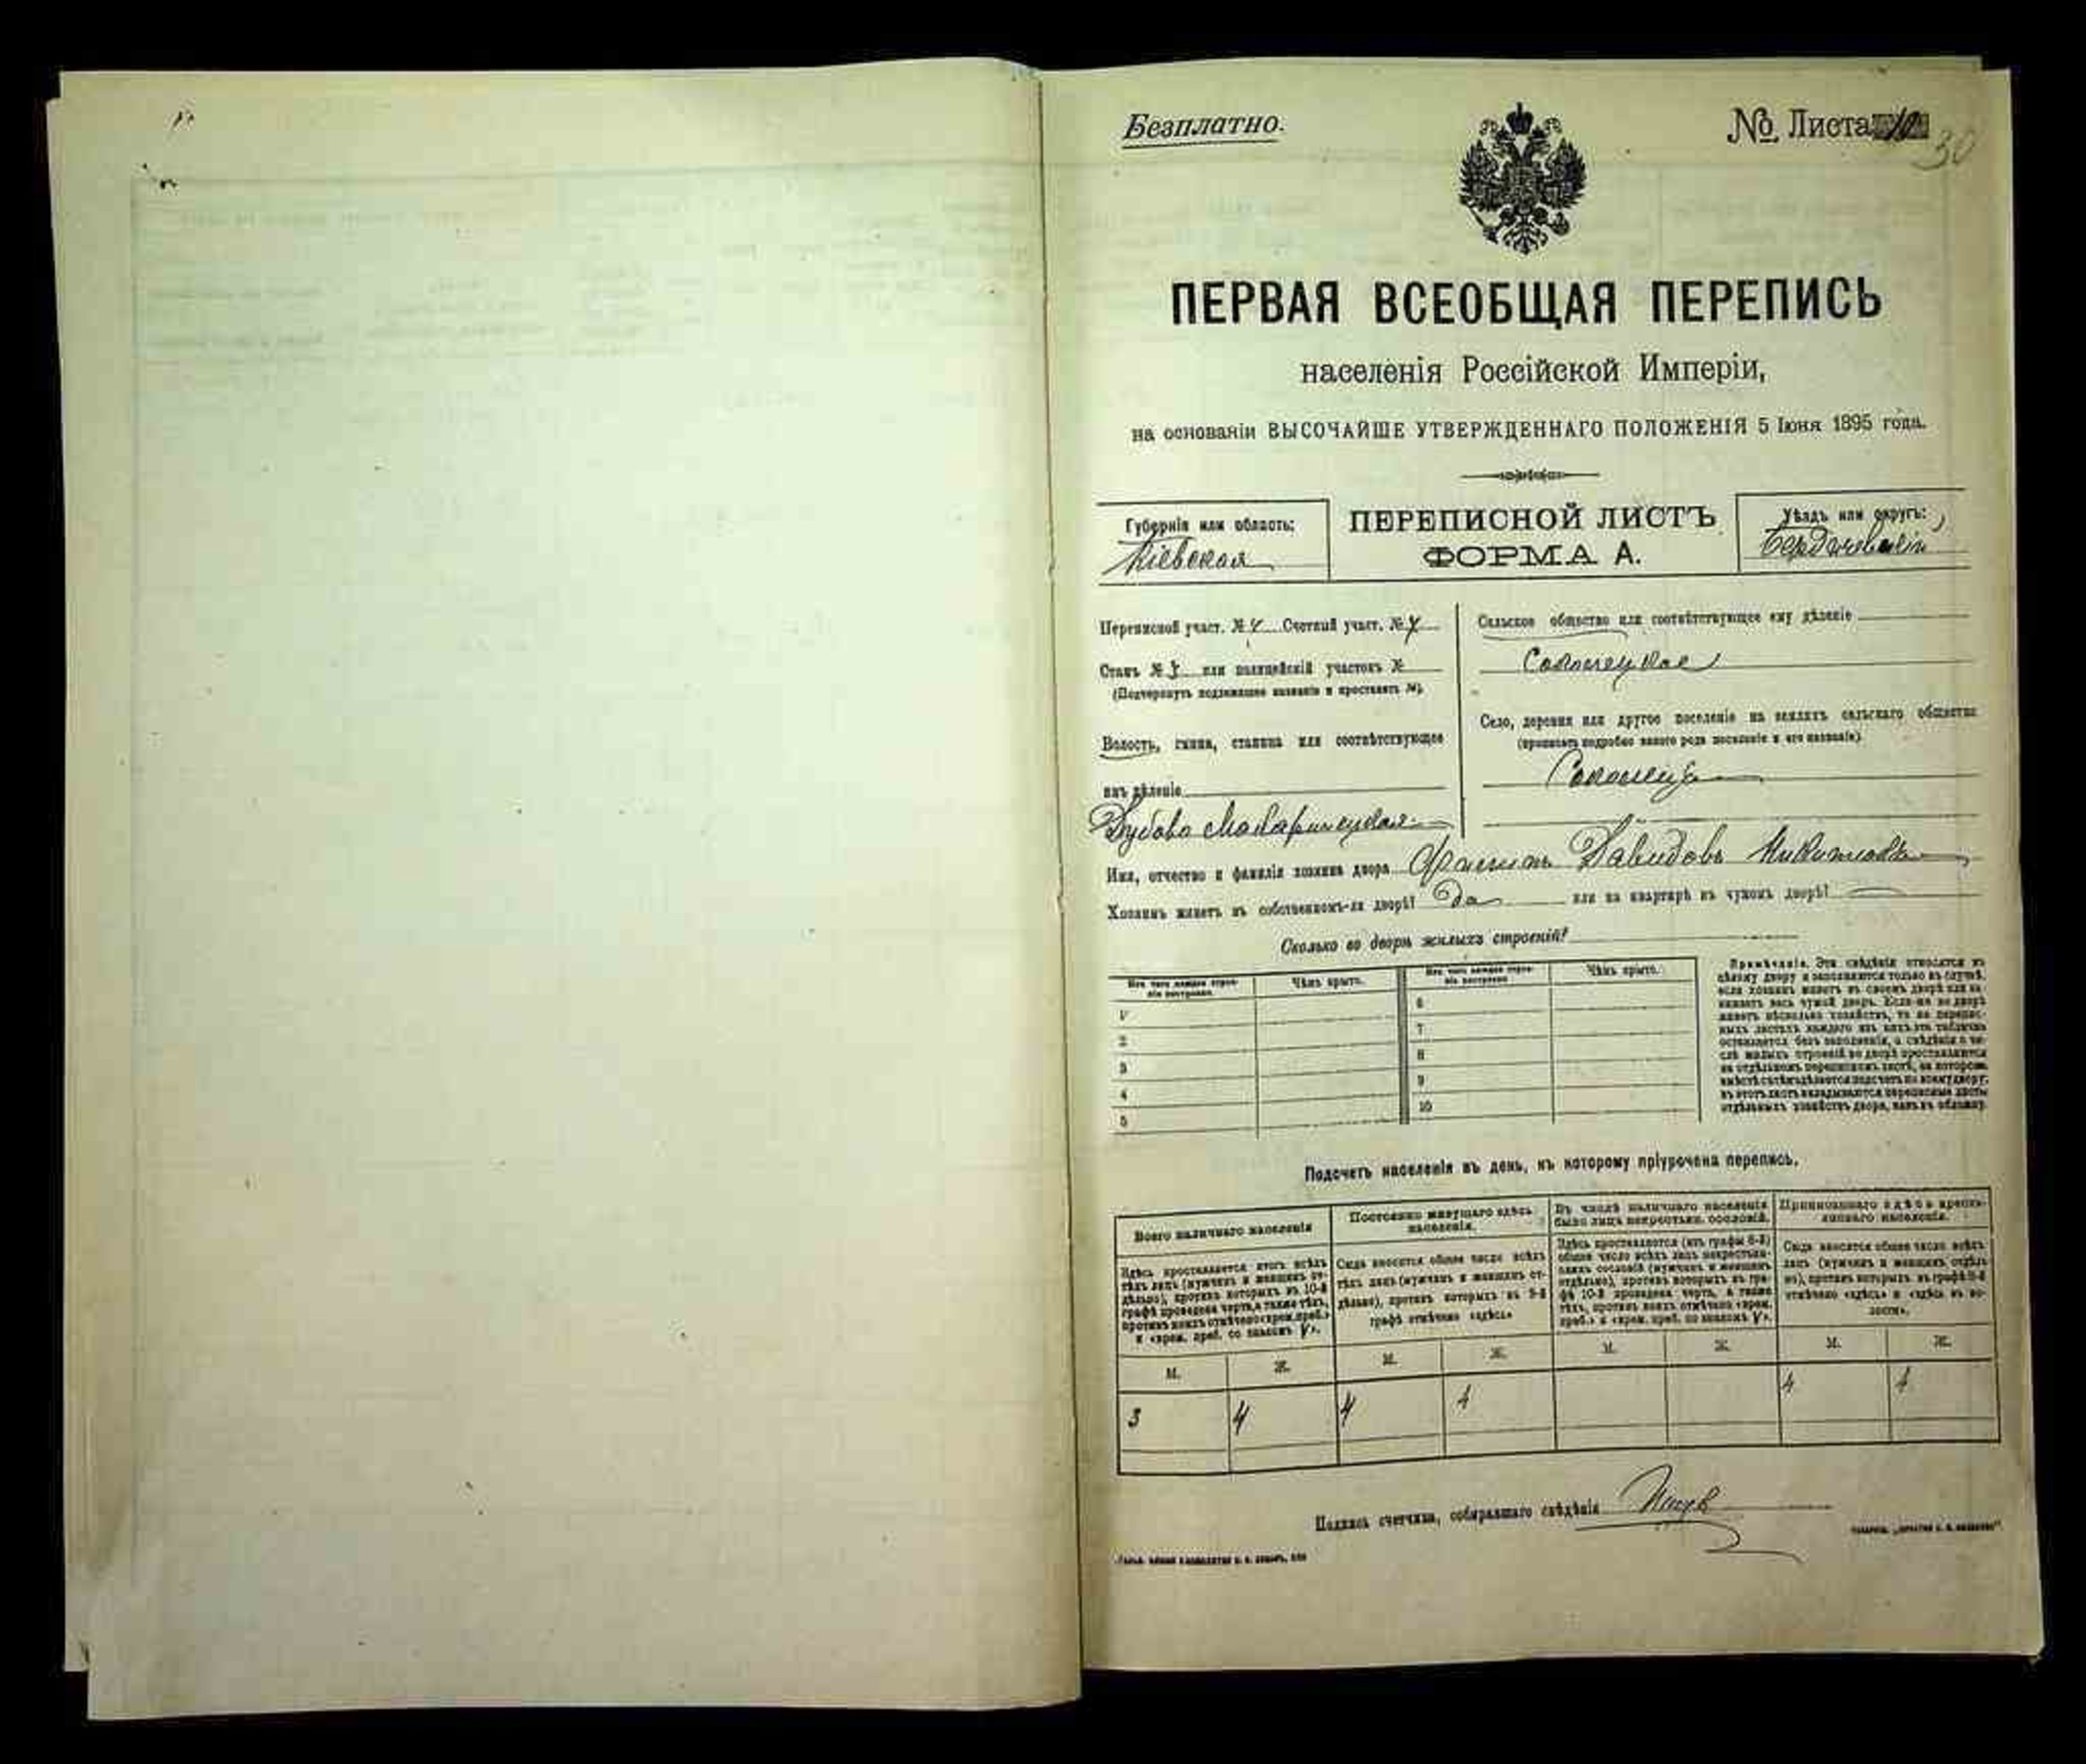 Безплатно.
№ Листа 10
30
ПЕРВАЯ ВСЕОБЩАЯ ПЕРЕПИСЬ
населенія Россійской Имперіи,
на основаніи ВЫСОЧАЙШЕ УТВЕРЖДЕННАГО ПОЛОЖЕНІЯ 5 Іюня 1895 года.
Губернія или область:
Кіевская
ПЕРЕПИСНОЙ ЛИСТЪ
ФОРМА А.
Уѣздъ или округъ:
Бердичевскій
Переписной участ. № 4 Счетный участ. №
Станъ № или полицейскій участокъ №
(Подчеркнуть подлежащее названіе и проставить №).
Волость, гмина, станица или соотвѣтствующее
имъ дѣленіе
Дубово Махаринецкая
Сельское общество или соотвѣтствующее ему дѣленіе
Село, деревня или другое поселеніе на земляхъ сельскаго общества
(прописать подробно какого рода поселеніе и его названіе)
Имя, отчество и фамилія хозяина двора Давидовъ
Хозяинъ живетъ въ собственномъ-ли дворѣ? Да или на квартирѣ въ чужомъ дворѣ?
Сколько во дворѣ жилыхъ строеній?
Изъ чего каждое строе-
ніе построено.
Чѣмъ крыто.
Изъ чего каждое строе-
ніе построено
Чѣмъ крыто.
1
2
3
4
5
6
7
8
9
10
Примѣчаніе. Эти свѣдѣнія относятся къ
цѣлому двору и заполняются только въ случаѣ,
если хозяинъ живетъ въ своемъ дворѣ или за-
нимаетъ весь чужой дворъ. Если-же во дворѣ
живетъ нѣсколько хозяйствъ, то на перепис-
ныхъ листахъ каждаго изъ нихъ эта табличка
оставляется безъ заполненія, а свѣдѣнія о чи-
слѣ жилыхъ строеній во дворѣ проставляются
на отдѣльномъ переписномъ листѣ, на которомъ
вмѣстѣ съ тѣмъ дѣлается подсчетъ по всему двору;
въ этотъ листъ вкладываются переписные листы
отдѣльныхъ хозяйствъ двора, какъ въ обложку.
Подсчетъ населенія въ день, къ которому пріурочена перепись.
Всего наличнаго населенія
Постоянно живущаго здѣсь
населенія.
Въ числѣ наличнаго населенія
было лицъ некрестьян. сословій.
Приписаннаго здѣсь кресть-
янскаго населенія.
Здѣсь проставляется итогъ всѣхъ
тѣхъ лицъ (мужчинъ и женщинъ от-
дѣльно), противъ которыхъ въ 10-й
графѣ проведена черта, а также тѣхъ,
противъ коихъ отмѣчено «врем. преб.»
и «врем. преб. со знакомъ V».
Сюда вносится общее число всѣхъ
тѣхъ лицъ (мужчинъ и женщинъ от-
дѣльно), противъ которыхъ въ 9-й
графѣ отмѣчено «здѣсь»
Здѣсь проставляется (изъ графы 6-й)
общее число всѣхъ лицъ некрестьян-
скихъ сословій (мужчинъ и женщинъ
отдѣльно), противъ которыхъ въ гра-
фѣ 10-й проведена черта, а также
тѣхъ, противъ коихъ отмѣчено «врем.
преб.» и «врем. преб. со знакомъ V».
Сюда вносится общее число всѣхъ
лицъ (мужчинъ и женщинъ отдѣль-
но), противъ которыхъ въ графѣ 8-й
отмѣчено «здѣсь» и «здѣсь въ во-
лости».
М. Ж. М. Ж. М. Ж. М. Ж.
3 4 4 4 4 4
Подпись счетчика, собиравшаго свѣдѣнія